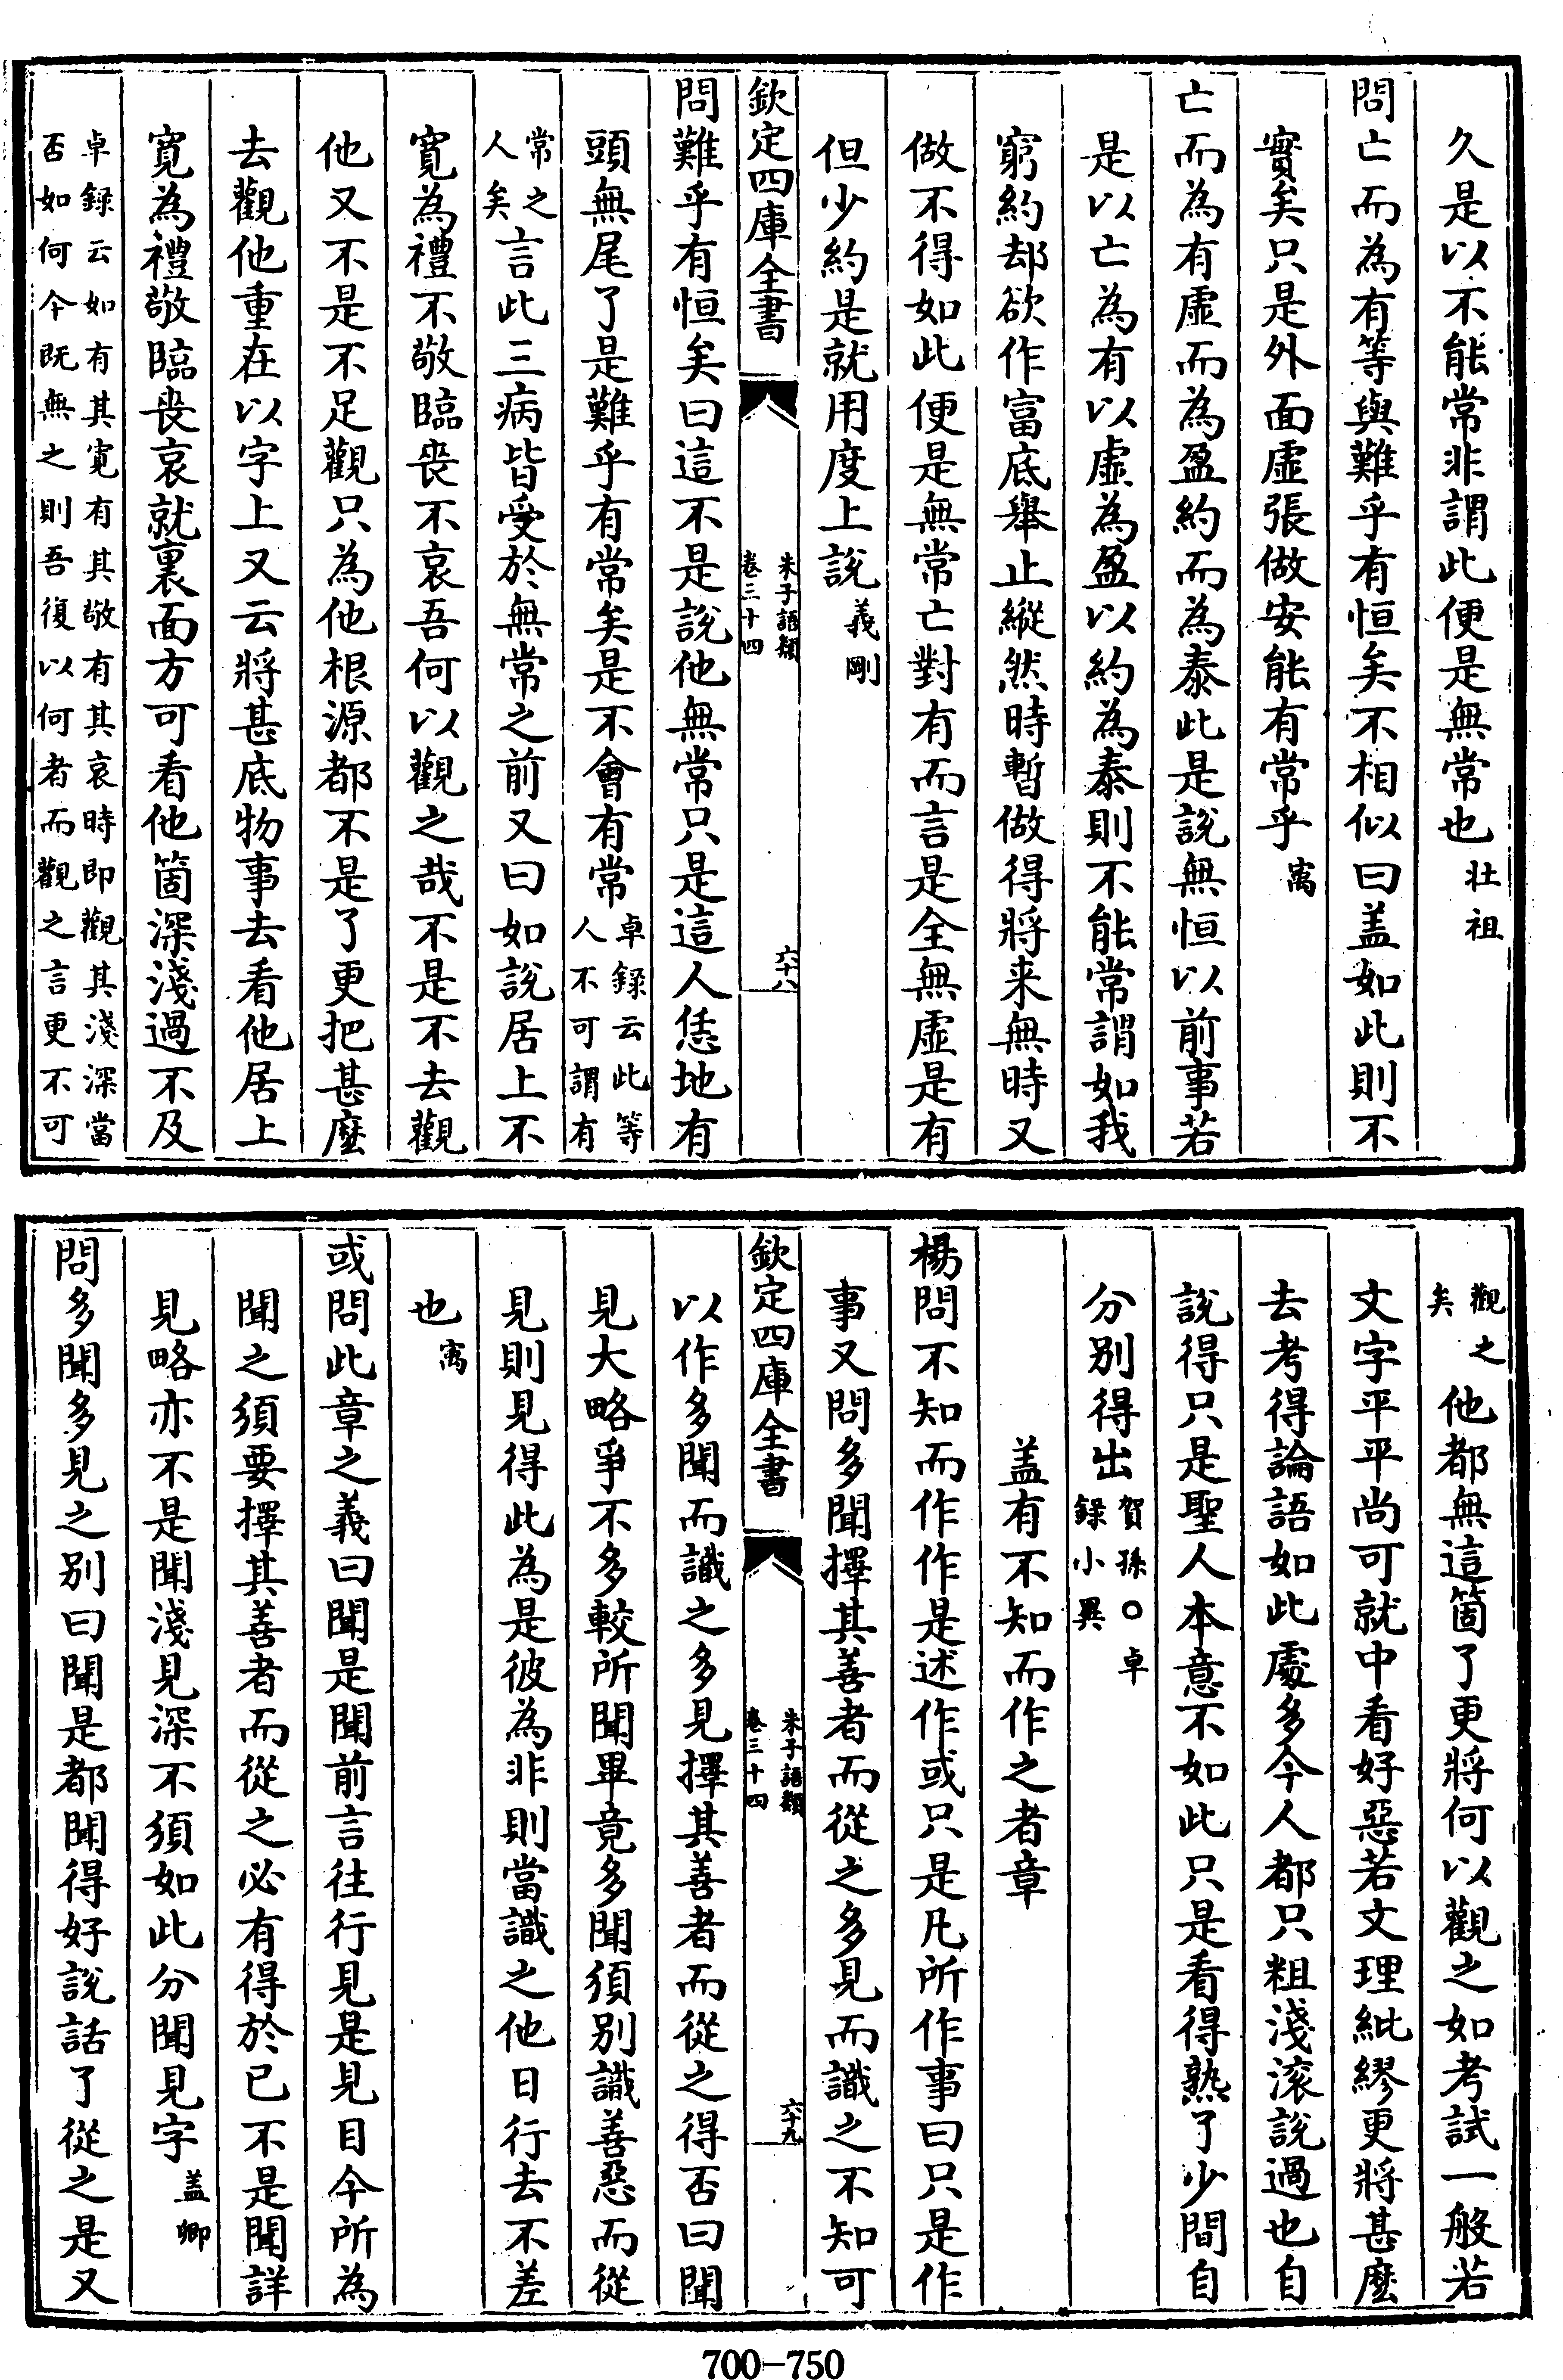 久是以不能常非謂此便是無常也壯祖
問亡而為有等與難乎有恒矣不相似曰盖如此則不
實矣只是外面虛張做安能有常乎㝢
亡而為有虛而為盈約而為泰此是說無恒以前事若
是以亡為有以虛為盈以約為泰則不能常謂如我
窮約却欲作富底舉止縱然時暫做得將来無時又
做不得如此便是無常亡對有而言是全無虛是有
但少約是就用度上說義剛
欽定四庫全書
朱子語類
卷三十四
六十八
問難乎有恒矣曰這不是說他無常只是這人恁地有
頭無尾了是難乎有常矣是不會有常卓錄云此等
人不可謂有
常之
人矣言此三病皆受於無常之前又曰如說居上不
寬為禮不敬臨喪不哀吾何以觀之哉不是不去觀
他又不是不足觀只為他根源都不是了更把甚麼
去觀他重在以字上又云將甚底物事去看他居上
寬為禮敬臨喪哀就裏面方可看他箇深淺過不及
卓錄云如有其寬有其敬有其哀時即觀其淺深當
否如何今既無之則吾復以何者而觀之言更不可
觀之
矣他都無這箇了更將何以觀之如考試一般若
文字平平尚可就中看好惡若文理紕繆更將甚麼
去考得論語如此處多今人都只粗淺滚說過也自
說得只是聖人本意不如此只是看得熟了少間自
分别得出賀孫○卓
錄小異
盖有不知而作之者章
楊問不知而作作是述作或只是凡所作事曰只是作
事又問多聞擇其善者而從之多見而識之不知可
欽定四庫全書
朱子語類
卷三十四
六十九
以作多聞而識之多見擇其善者而從之得否曰聞
見大略爭不多較所聞畢竟多聞須别識善惡而從
見則見得此為是彼為非則當識之他日行去不差
也㝢
或問此章之義曰聞是聞前言往行見是見目今所為
聞之須要擇其善者而從之必有得於已不是聞詳
見略亦不是聞淺見深不須如此分聞見字盖卿
問多聞多見之别曰聞是都聞得好說話了從之是又
700-750